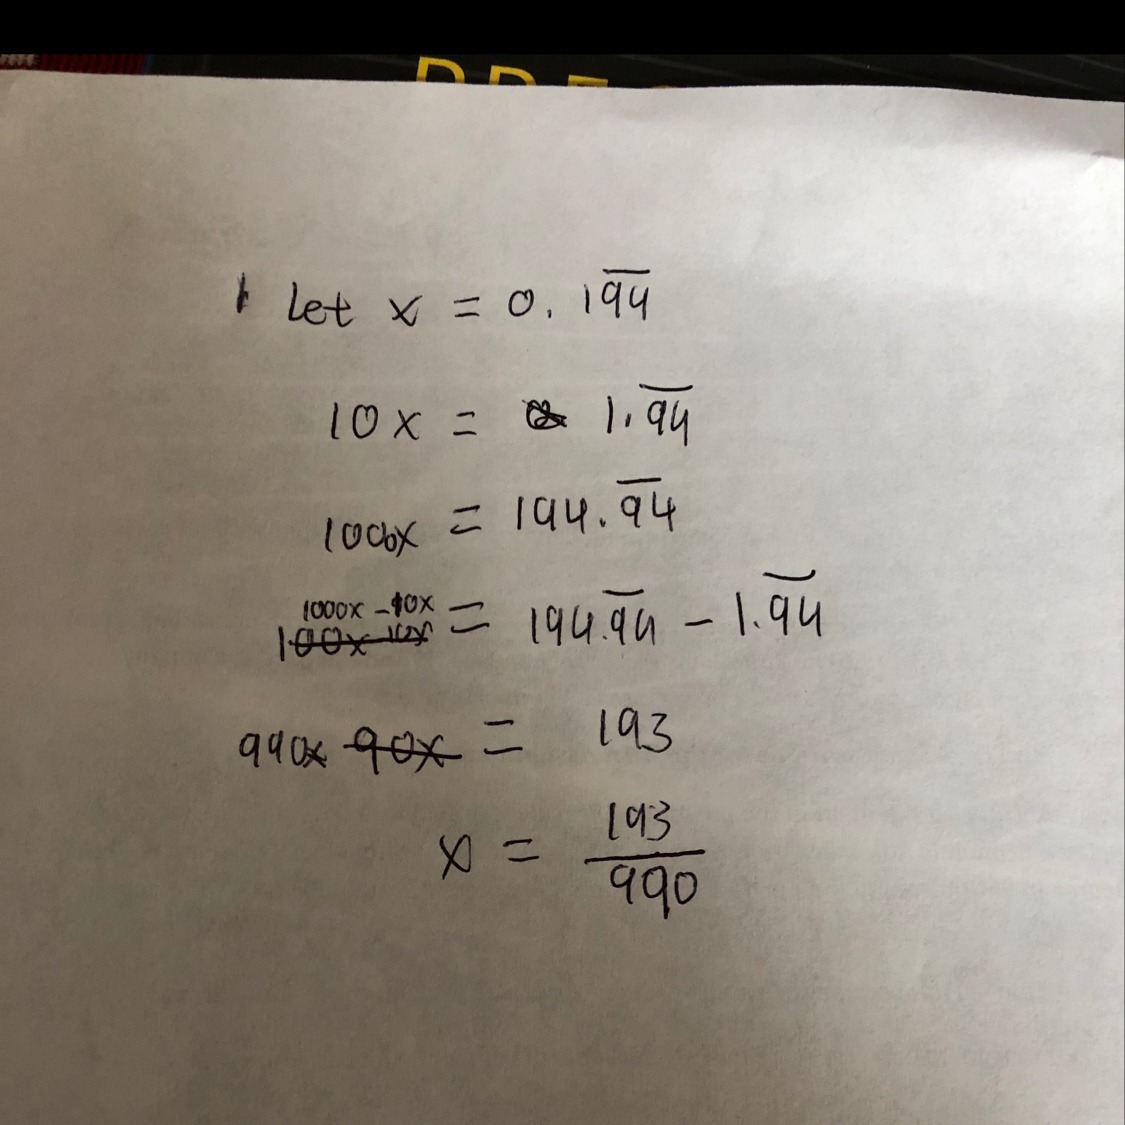 Let x = 0.1\overline{94}
10x = 1.\overline{94}
1000x = 194.\overline{94}
1000x - 10x = 194.\overline{94} - 1.\overline{94}
100x 10x
990x 90x = 193
x = \frac{193}{990}